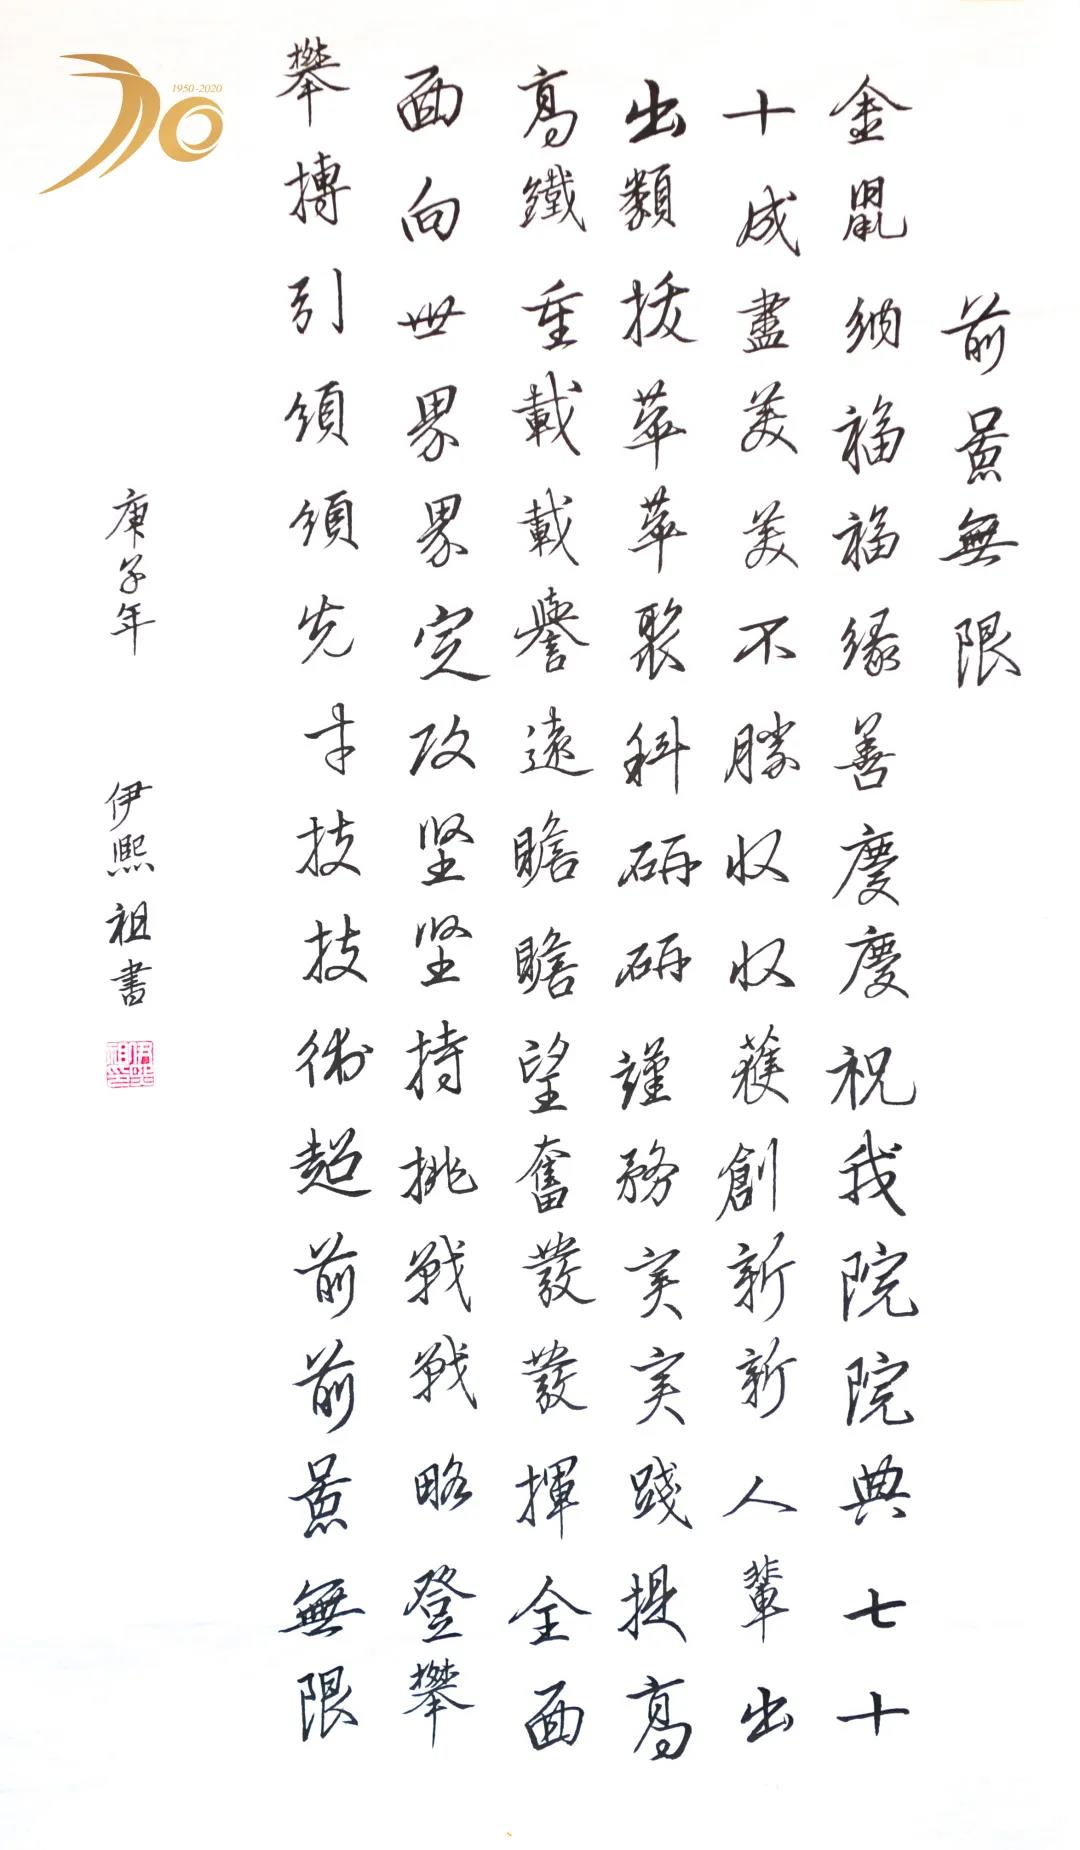 1950-2020
前景無限
金鼠納福福緣善慶慶祝我院院典七十
十成盡美美不勝収収獲創新新人輩出
出類拔萃萃聚科研研謹務実実踐提高
高鐵重載載譽遠瞻瞻望奮發發揮全面
面向世界界定攻坚坚持挑戦戦略登攀
攀搏引領領先才技技術超前前景無限
庚子年 伊熙祖書